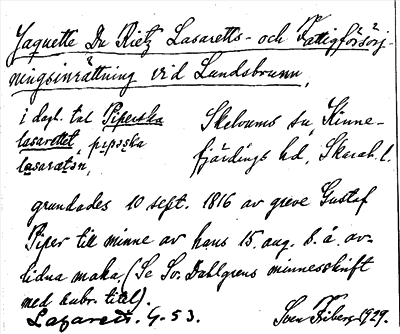 Jaquette Du Rietz Lasaretts- och Fattigförsörj-
ningsinrättning vid Lundsbrunn,
i dagl. tal Piperska Skelvums sn, Kinne-
lasarettet, pipəʂka fjärdings hd, Skarab. l.
lasarætən,
grundades 10 sept. 1816 av greve Gustaf
Piper till minne av hans 15. aug. s. å. av-
lidna maka (Se Sv. Dahlgrens minnesskrift
med ander. titel).
Lasarett. G-53. Sven Fiberg 1929.